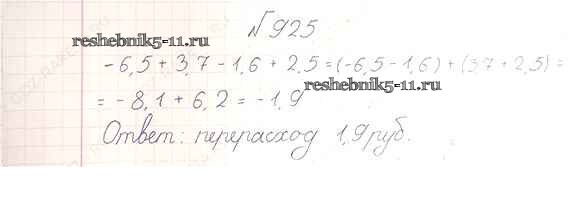 №925
reshebnik5-11.ru
-6,5 + 3,7 - 1,6 + 2,5 = (-6,5 - 1,6) + (3,7 + 2,5) =
reshebnik5-11.ru
= - 8,1 + 6,2 = -1,9
Ответ: перерасход 1,9 руб.